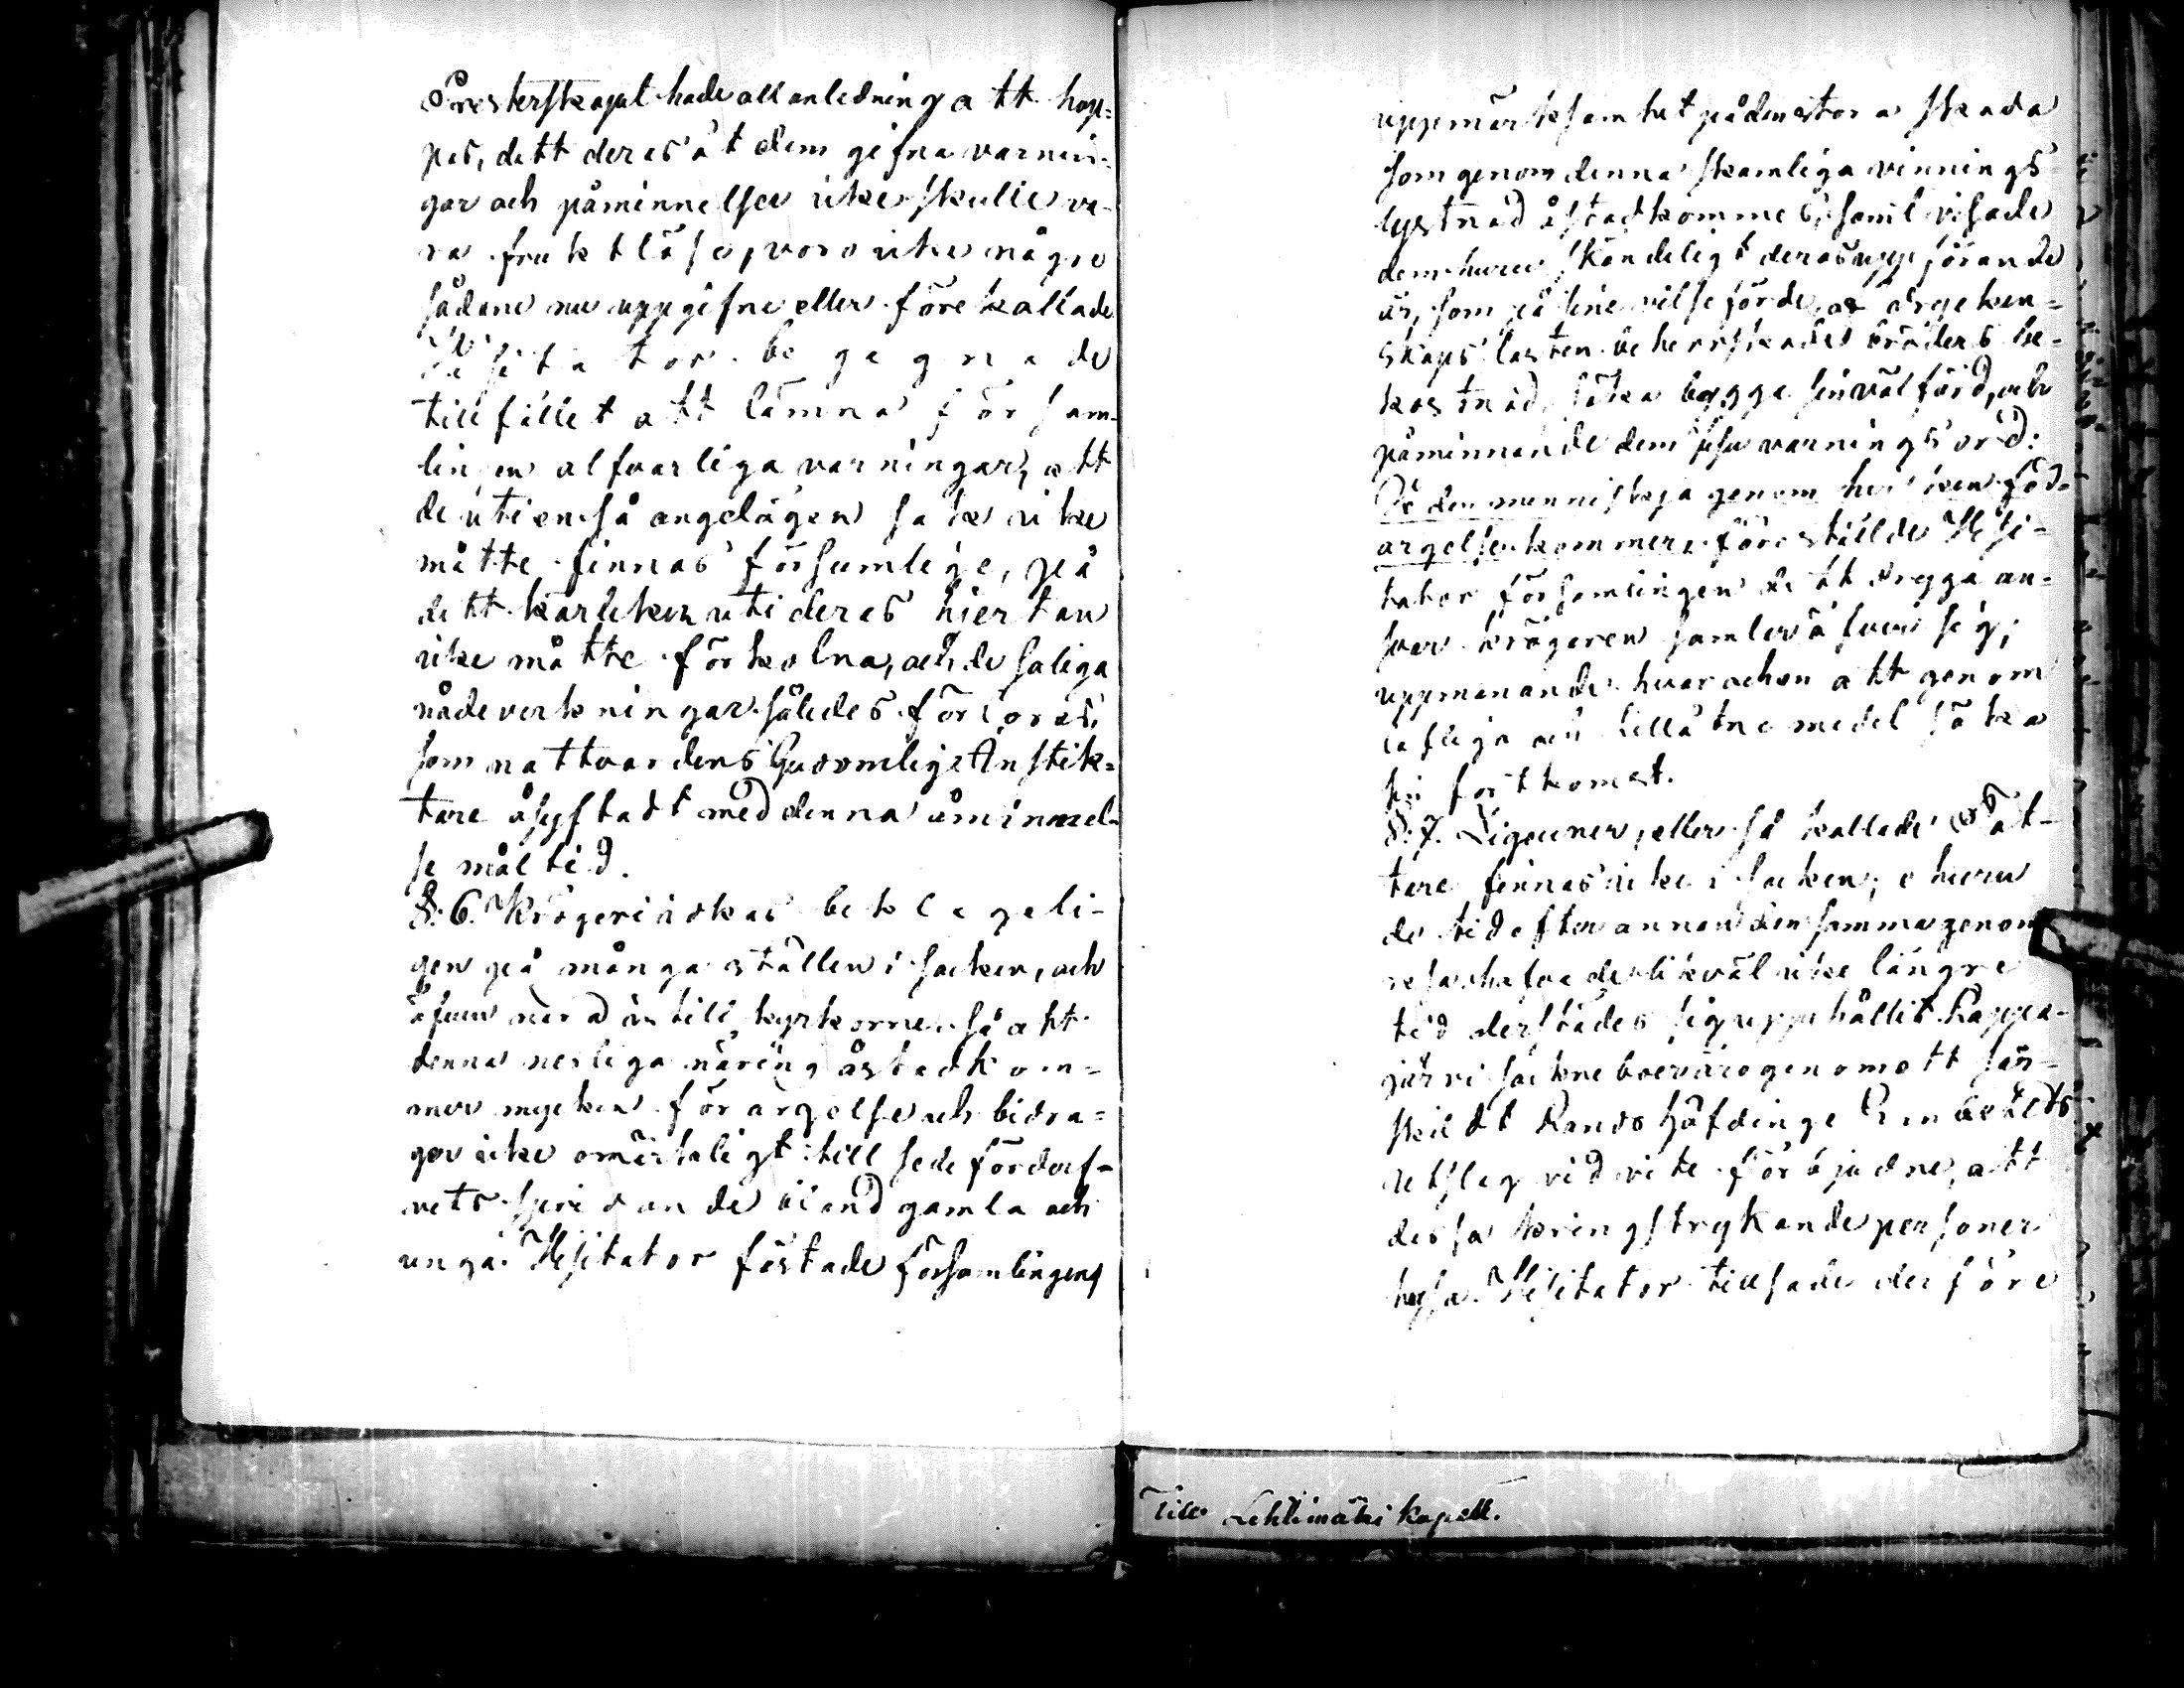 Presterskapet hade all anledning att hop=
pas, dett deras åt dem gifna varnin-
gar och påminnelser icke skulle va-
ra fruktlöse, voro icke några
sådane nu uppgifne eller förekallade
Visitator begagnade
tillfället att lämna försam-
lingen alfvarliga varningar, att
de uti en så angelägen sak icke
måtte finnas försumlige, på
dett kärleken uti deras hiertan
icke måtte förkolna, och de saliga
nådeverkningar således förloras,
som nattvardens Gudomlige Instick=
tare åsyftadt med denna åminnel-
se måltid.
§. 6. Krögeri idkas beklageli-
gen på många ställen i socken, och
äfven när in till kyrkorne så att
denna nesliga näring åstadkom=
mer mycken förargelse och bidra=
ger icke omärkeligt till sedeförderf-
vets spridande bland gamla och
unga. Visitator fästade församlingens
uppmärksamhet på den stora skada
som genom denna skamliga vinnings
lystnad åstadkommes, samt visade
dem huru skändeligt deras uppförande
är, som på sine vilseförde, af drycken=
skaps lasten beherrskades bröders be-
kostnad, söka bygga sin välfärd, och
påminnande dem Jesu varnings ord:
Ve den menniskja genom hvilken för-
argelsen kommer, förestälde Visi-
tator församlingen dett drygga an-
svar krögaren samlar öfver sig;
uppmanande hvar och en att genom
lofliga och tillåtne medel söka
sin fortkomst.
§. 7. Zigeuner, eller så kallade Tat-
tare finnas icke i socken; ehuru
de tid efter annan densamma genom
resa hafva de likväl icke längre
tid derstädes sig uppehållit. Lappa-
järvi sockneboer äro genom ett sär-
skildt Landshöfdinge Embetets
utslag vid vite förbjudne, att
dessa kringstrykande personer
hysa. Visitator tillsade derföre
Till Lehtimäki kapell.